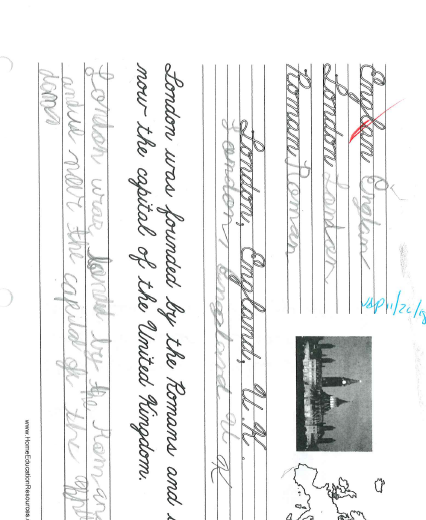 England England
London London
Roman Roman
London, England, U.K.
London, England U K
London was founded by the Romans and
now the capital of the United Kingdom.
London was by the Romans
now the capital of the
www.HomeEducationResources.